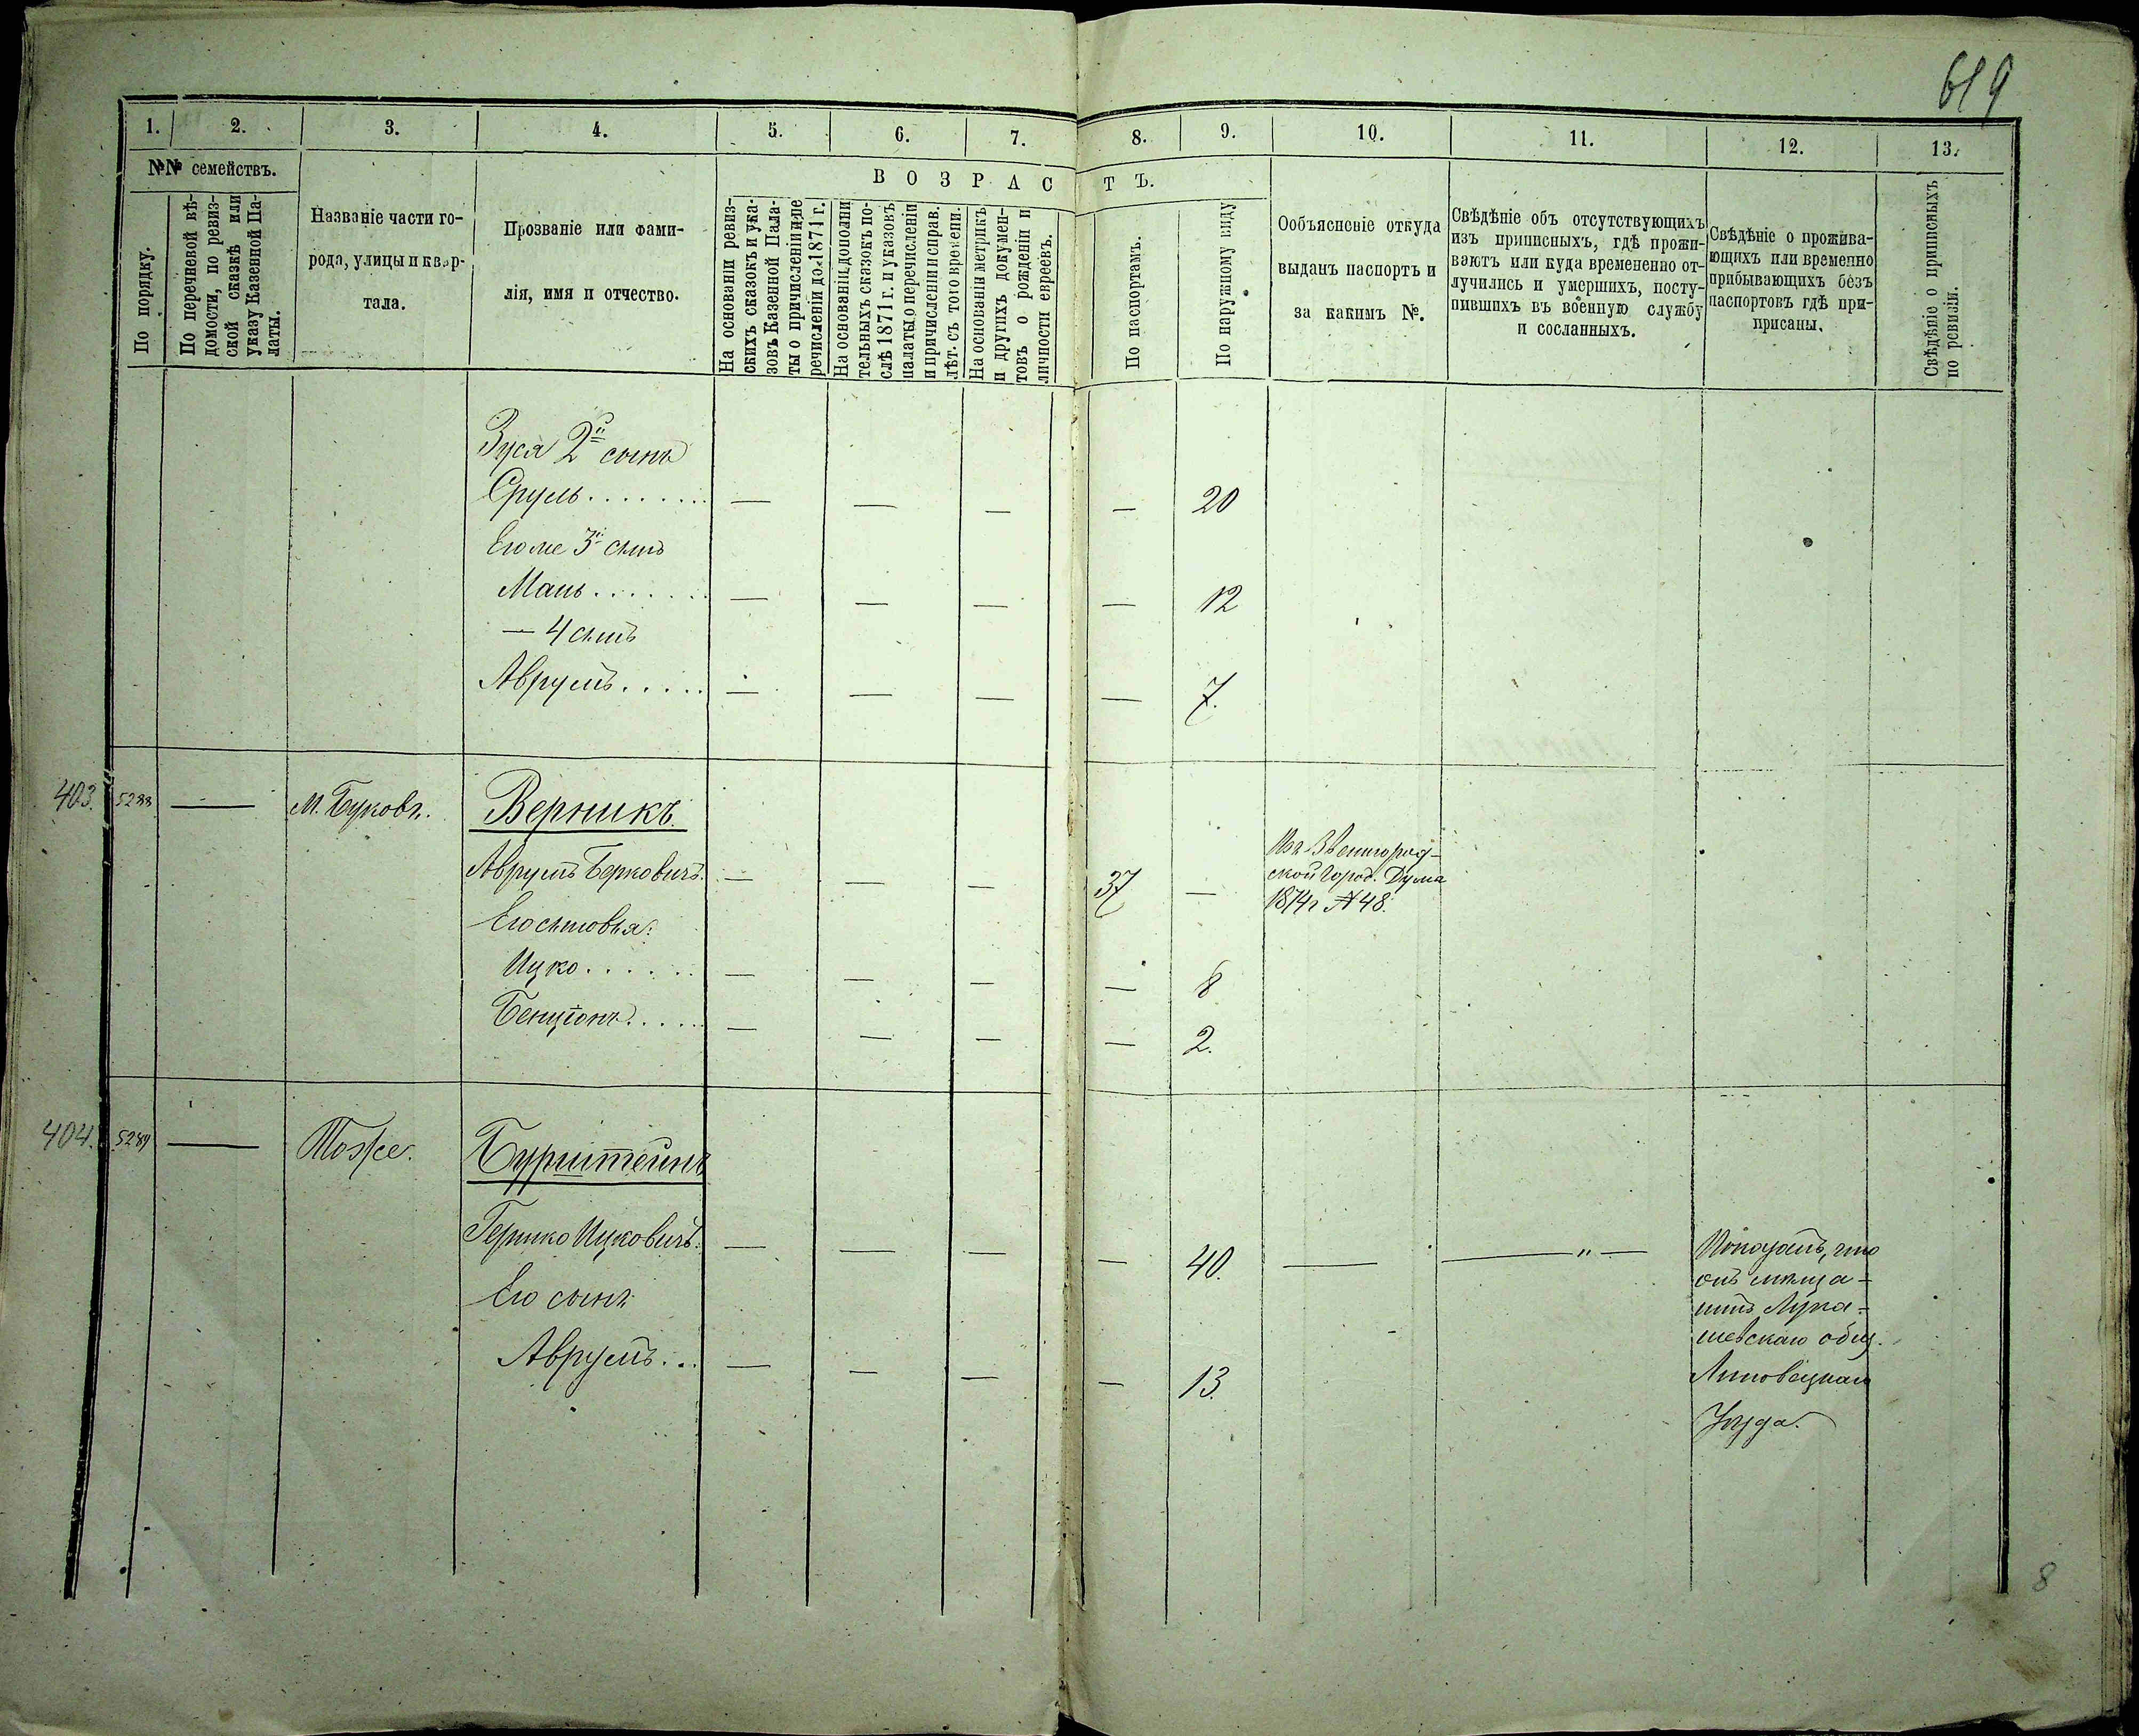 619
1. 2. 3. 4. 5. 6. 7. 8. 9. 10. 11. 12. 13.
№№ семействъ.
По порядку.
По перечневой вѣ-
домости, по ревиз-
ской сказкѣ или
указу Казенной Па-
латы.
Названіе части го-
рода, улицы и квар-
тала.
Прозваніе или фами-
лія, имя и отчество.
ВОЗРАСТЪ.
На основаніи ревиз-
скихъ сказокъ и ука-
зовъ Казенной Пала-
ты о причисленіи и пе
речисленіи до 1871 г.
На основаніи дополни
тельныхъ сказокъ по-
слѣ 1871 г. и указовъ
палаты, о перечисленіи
и причисленіи и справ.
лѣт. съ того времени.
На основаніи метрикъ
и другихъ докумен-
товъ о рожденіи и
личности евреевъ.
По паспортамъ.
По наружному виду
Ообъясненіе откуда
выданъ паспортъ и
за какимъ №.
Свѣдѣніе объ отсутствующихъ
изъ приписныхъ, гдѣ прожи-
ваютъ или куда времененно от-
лучились и умершихъ, посту-
пившихъ въ военную службу
и сосланныхъ.
Свѣдѣніе о прожива-
ющихъ или временно
прибывающихъ безъ
паспортовъ гдѣ при-
присаны.
Свѣдѣніе о приписныхъ
по ревизіи.
Зуся 2й сынъ
Сруль........ — — — — 20
Его же 3й сынъ
Мань....... — — — — 12
— 4 сынъ
Аврумъ..... — — — — 7.
403. 5288 — М. Буковъ. Верникъ.
Аврумъ Берковичъ. — — — 37 —
Изъ Звенигород-
ской Город. Дума
1874г №48.
Его сыновья:
Ицко...... — — — — 8
Бенціонъ..... — — — — 2.
404. 5289 — Тоже. Бурштейнъ
Гершко Ицковичъ. — — — — 40. — — " —
Показалъ, что
онъ мѣща-
нинъ Лука-
шевскаго общ.
Липовецкаго
Уѣзда.
Его сынъ
Аврумъ... — — — — 13.
8